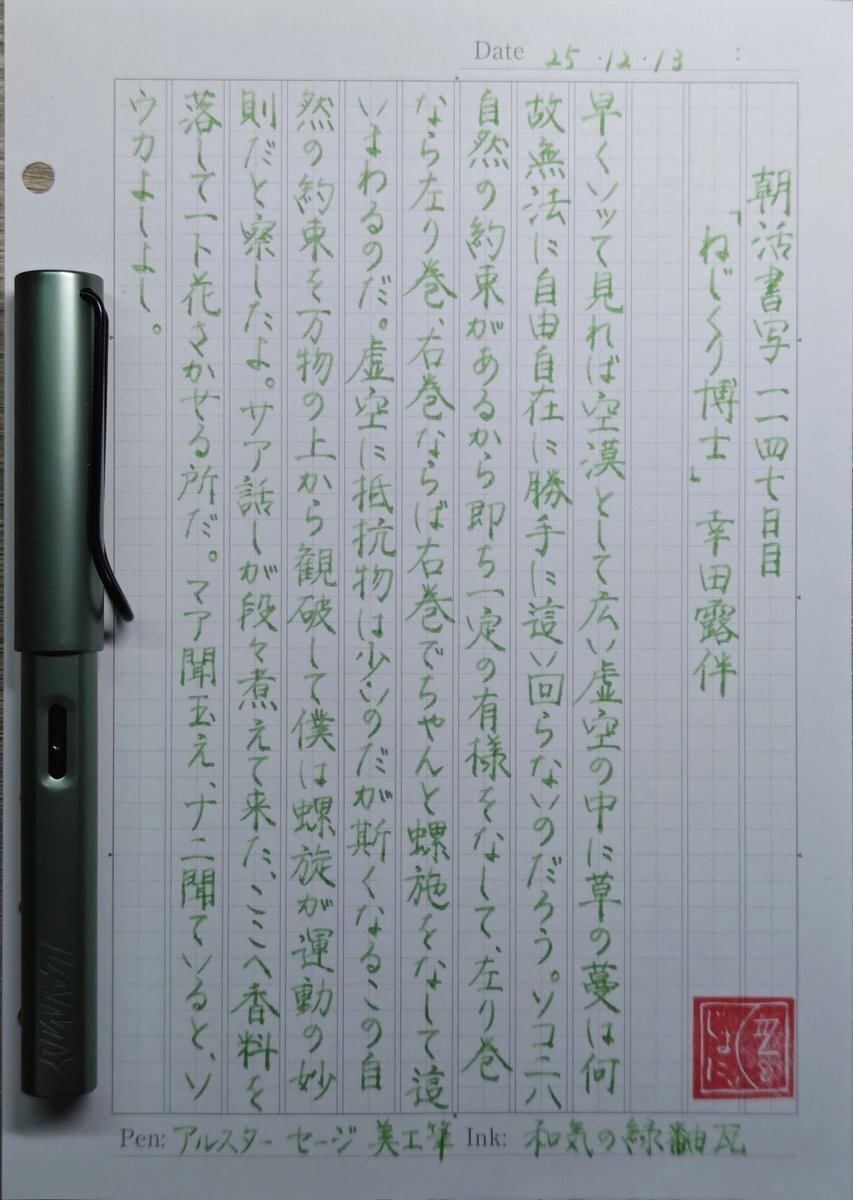 Date 25・12・13 :
朝活書写 一一四七日目
「ねじくり博士」 幸田露伴
早くソッて見れば空漠として広い虚空の中に草の蔓は何
故無法に自由自在に勝手に這い回らないのだろう。ソコニハ
自然の約束があるから即ち一定の有様をなして、左り巻
なら左り巻、右巻ならば右巻でちゃんと螺施をなして這
いまわるのだ。虚空に抵抗物は少いのだが斯くなるこの自
然の約束を万物の上から観破して僕は螺旋が運動の妙
則だと察したよ。サア話しが段々煮えて来た、ここへ香料を
落して一ト花さかせる所だ。マア聞玉え、ナニ聞ていると、ソ
ウカよしよし。
じょに
Pen: アルスター セージ 美工筆 Ink: 和気の緑釉瓦
LAMY